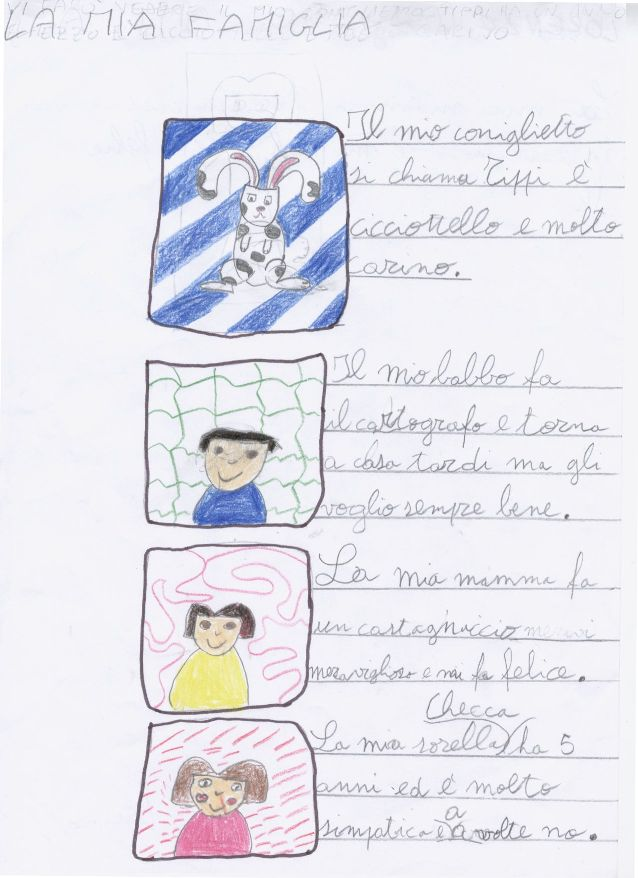 LA MIA FAMIGLIA
Il mio coniglietto
si chiama Tippi è
cicciottello e molto
carino.
Il mio babbo fa
il cartografo e torna
a casa tardi ma gli
voglio sempre bene.
La mia mamma fa
un castagnaccio
meraviglioso e mi fa felice.
Checca
La mia sorella ha 5
anni ed è molto
simpatica e a volte no.